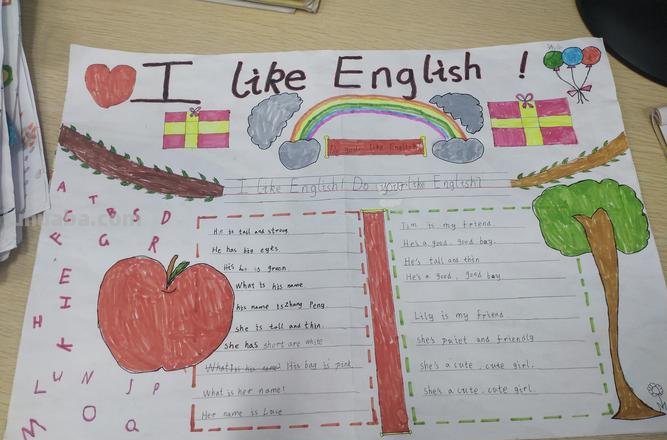 I like English !
Do you like English
I like English! Do you like English?
A
T
G
D
G
R
E
I
H
K
L
U
N
J
P
M
O
Q
He is tall and strong
He has big eyes.
His is green
What is his name
his name is Zhang Peng
she is tall and thin.
she has short are white
What is his name? His bag is pink
What is her name!
Her name is
Tim is my friend
He's a good, good boy.
He's tall and thin
He's a good, good boy
Lily is my friend
she's puiet and friendly
she's a cute, cute girl.
she's a cute, cute girl.